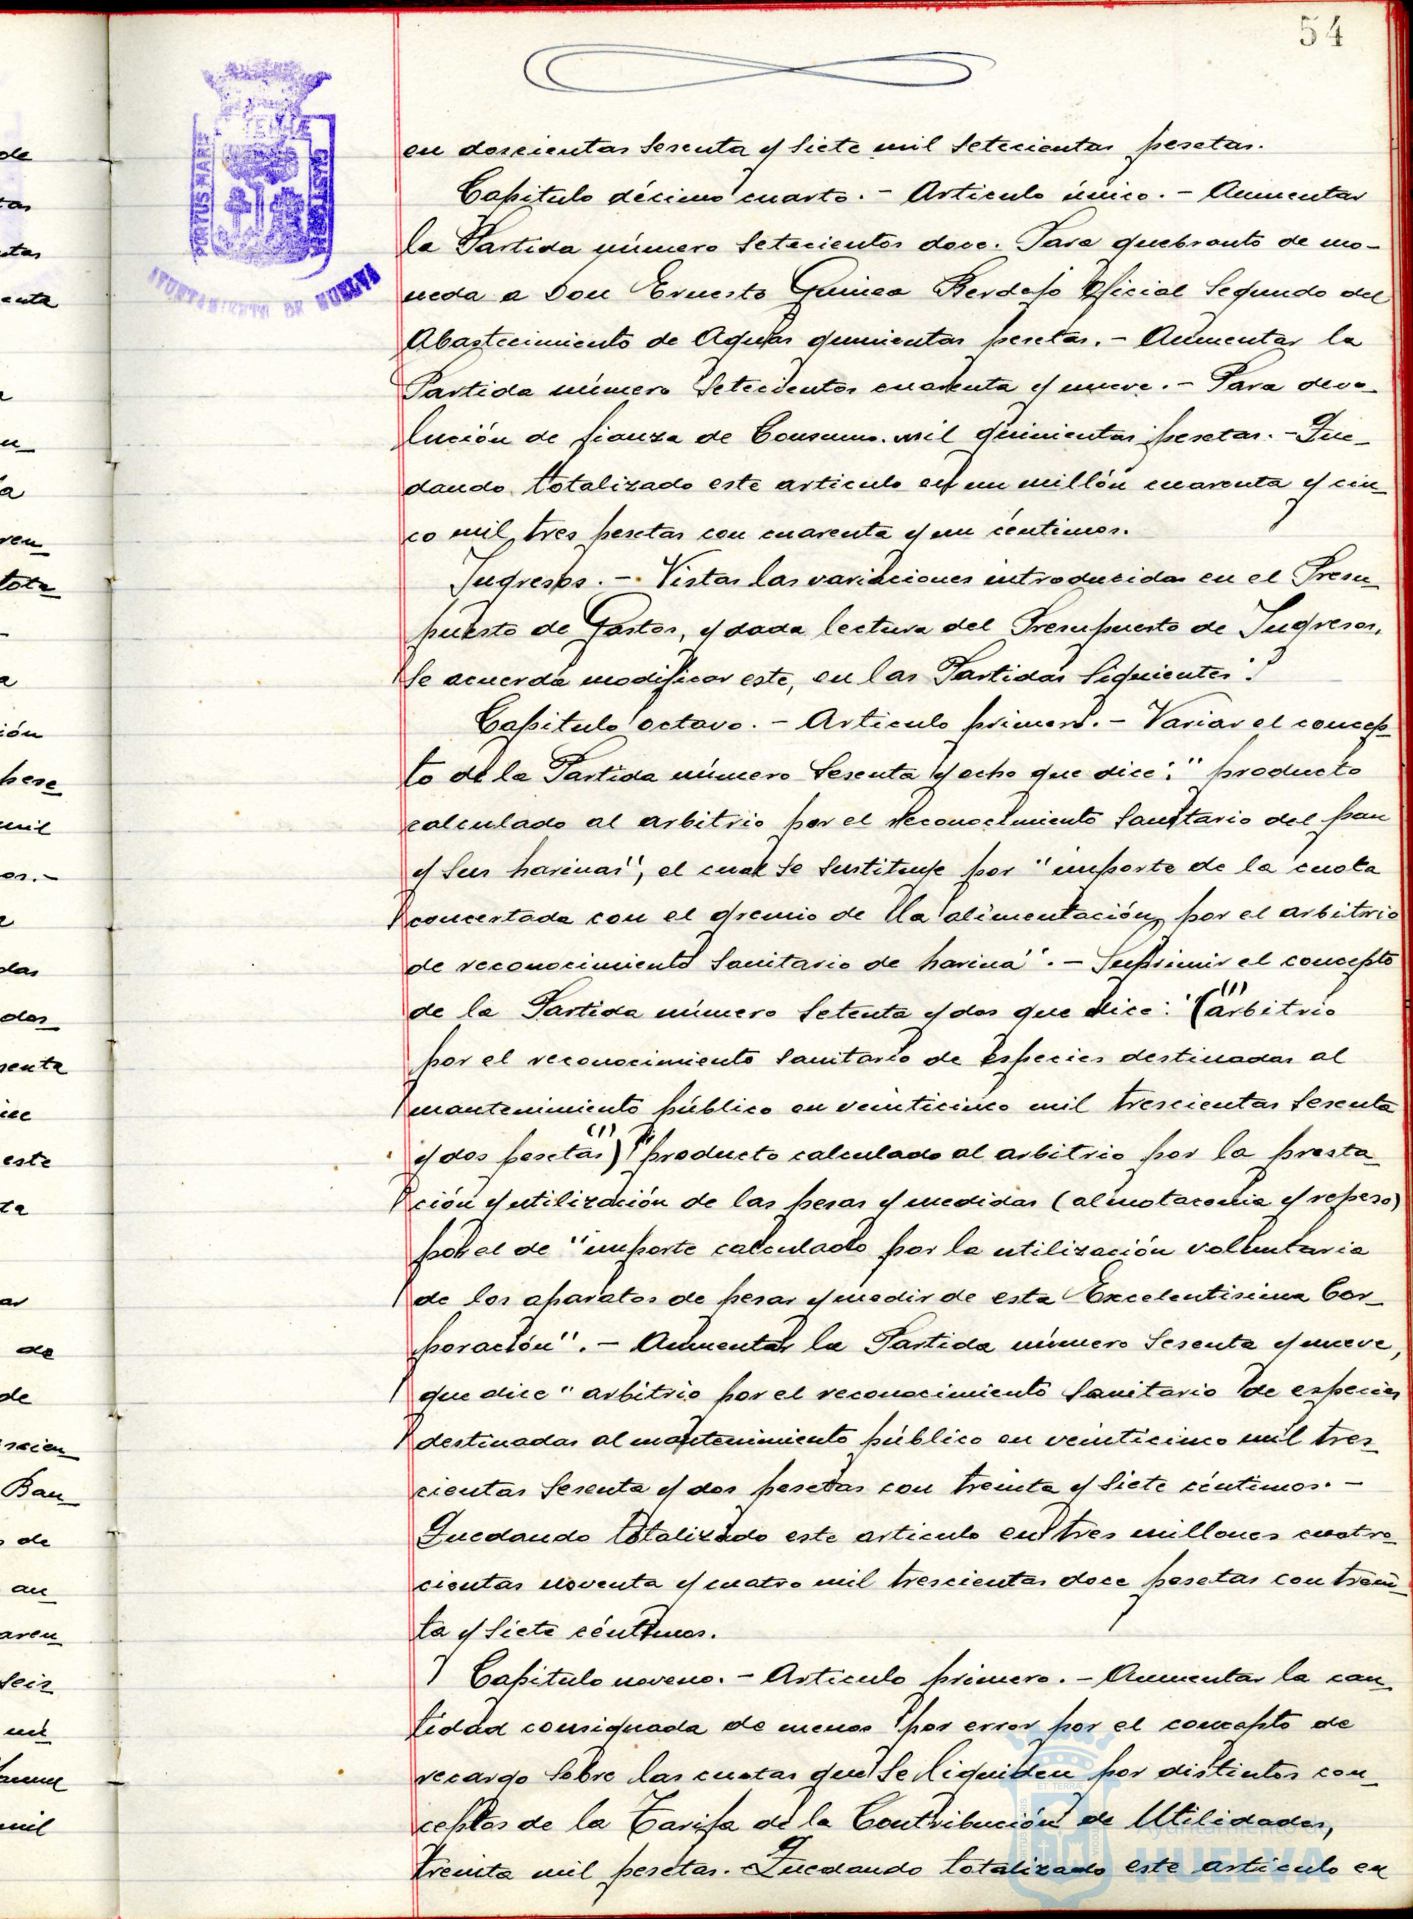 54
PORTUS MARIS ET TERRÆ CUSTODIA
AYUNTAMIENTO DE HUELVA
en doscientas sesenta y siete mil setecientas pesetas.
Capitulo décimo cuarto. - Articulo único. - Aumentar
la Partida número setecientos doce. Para quebranto de mo-
neda a Don Ernesto Guinea Berdejo Oficial Segundo del
Abastecimiento de Aguas quinientas pesetas. - Aumentar la
Partida número setecientos cuarenta y nueve. - Para devo-
lución de fianza de Consumo. mil quinientas pesetas. - Que-
dando totalizado este articulo en un millón cuarenta y cin-
co mil tres pesetas con cuarenta y un céntimos.
Ingresos. - Vistas las variaciones introducidas en el Presu-
puesto de Gastos, y dada lectura del Presupuesto de Ingresos,
se acuerda modificar este, en las Partidas siguientes:
Capitulo octavo. - Articulo primero. - Variar el concep-
to de la Partida número sesenta y ocho que dice: "producto
calculado al arbitrio por el reconocimiento sanitario del pan
y sus harinas", el cual se sustituye por "importe de la cuota
concertada con el gremio de la alimentación, por el arbitrio
de reconocimiento sanitario de harina". - Suprimir el concepto
de la Partida número setenta y dos que dice: "(arbitrio
(1)
por el reconocimiento sanitario de especies destinadas al
mantenimiento público en veinticinco mil trescientas sesenta
y dos pesetas) "producto calculado al arbitrio por la presta-
(1)
ción y utilización de las pesas y medidas (almotacenia y repeso)
por el de "importe calculado por la utilización voluntaria
de los aparatos de pesar y medir de esta Excelentisima Cor-
poración". - Aumentar la Partida número sesenta y nueve,
que dice "arbitrio por el reconocimiento sanitario de especies
destinadas al mantenimiento público en veinticinco mil tres-
cientas sesenta y dos pesetas con treinta y siete céntimos. -
Quedando totalizado este articulo en tres millones cuatro-
cientas noventa y cuatro mil trescientas doce pesetas con trein-
ta y siete céntimos.
Capitulo noveno. - Articulo primero. - Aumentar la can-
tidad consignada de menos por error por el concepto de
recargo sobre las cuotas que se liquiden por distintos con-
ceptos de la Tarifa de la Contribución de Utilidades,
treinta mil pesetas. - Quedando totalizado este articulo en
Ayuntamiento de
HUELVA